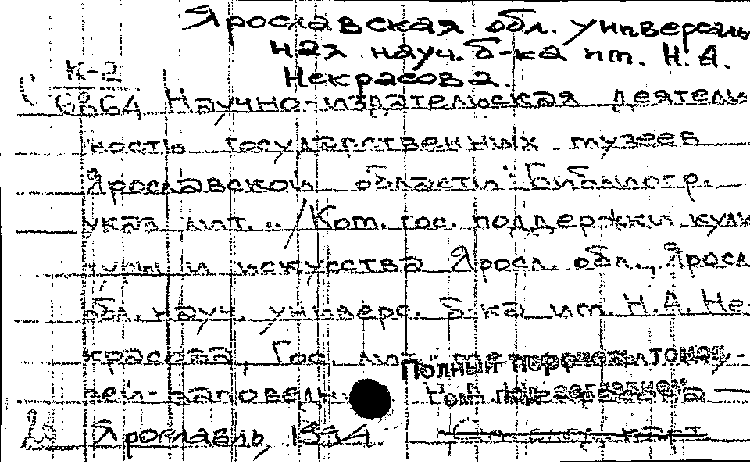 Ярославская обл. универсаль
ная науч. б-ка им. Н.А.
Некрасова.
К-2
6864 Научно-издательская деятель
ность государственных музеев
Ярославской области: Библиогр.
указ. лит. / Ком. гос. поддержки куль
туры и искусства Яросл. обл., Яросл
обл. науч. универс. б-ка им. Н.А. Не
красова, Гос. лит.
зей-заповедн
Полный
Ярославль, 1994.